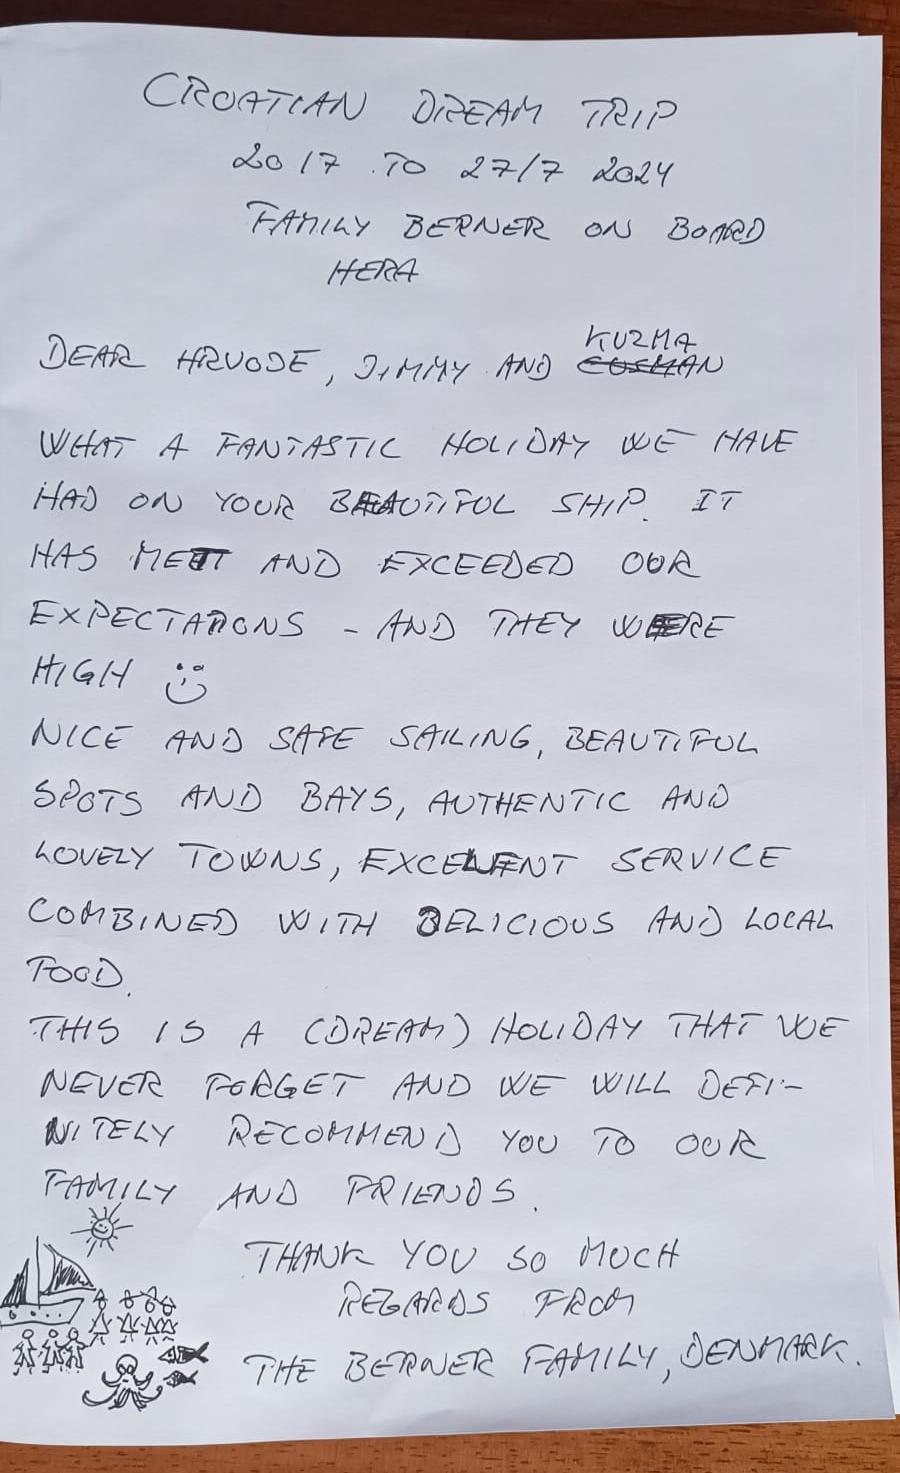 CROATIAN DREAM TRIP
20/7 TO 27/7 2024
FAMILY BERNER ON BOARD
HERA
DEAR HRVOJE, JIMMY AND KUZMA
WHAT A FANTASTIC HOLIDAY WE HAVE
HAD ON YOUR BEAUTIFUL SHIP. IT
HAS MET AND EXCEEDED OUR
EXPECTATIONS - AND THEY WERE
HIGH
NICE AND SAFE SAILING, BEAUTIFUL
SPOTS AND BAYS, AUTHENTIC AND
LOVELY TOWNS, EXCELLENT SERVICE
COMBINED WITH DELICIOUS AND LOCAL
FOOD.
THIS IS A (DREAM) HOLIDAY THAT WE
NEVER FORGET AND WE WILL DEFI-
NITELY RECOMMEND YOU TO OUR
FAMILY AND FRIENDS.
THANK YOU SO MUCH
REGARDS FROM
THE BERNER FAMILY, DENMARK.